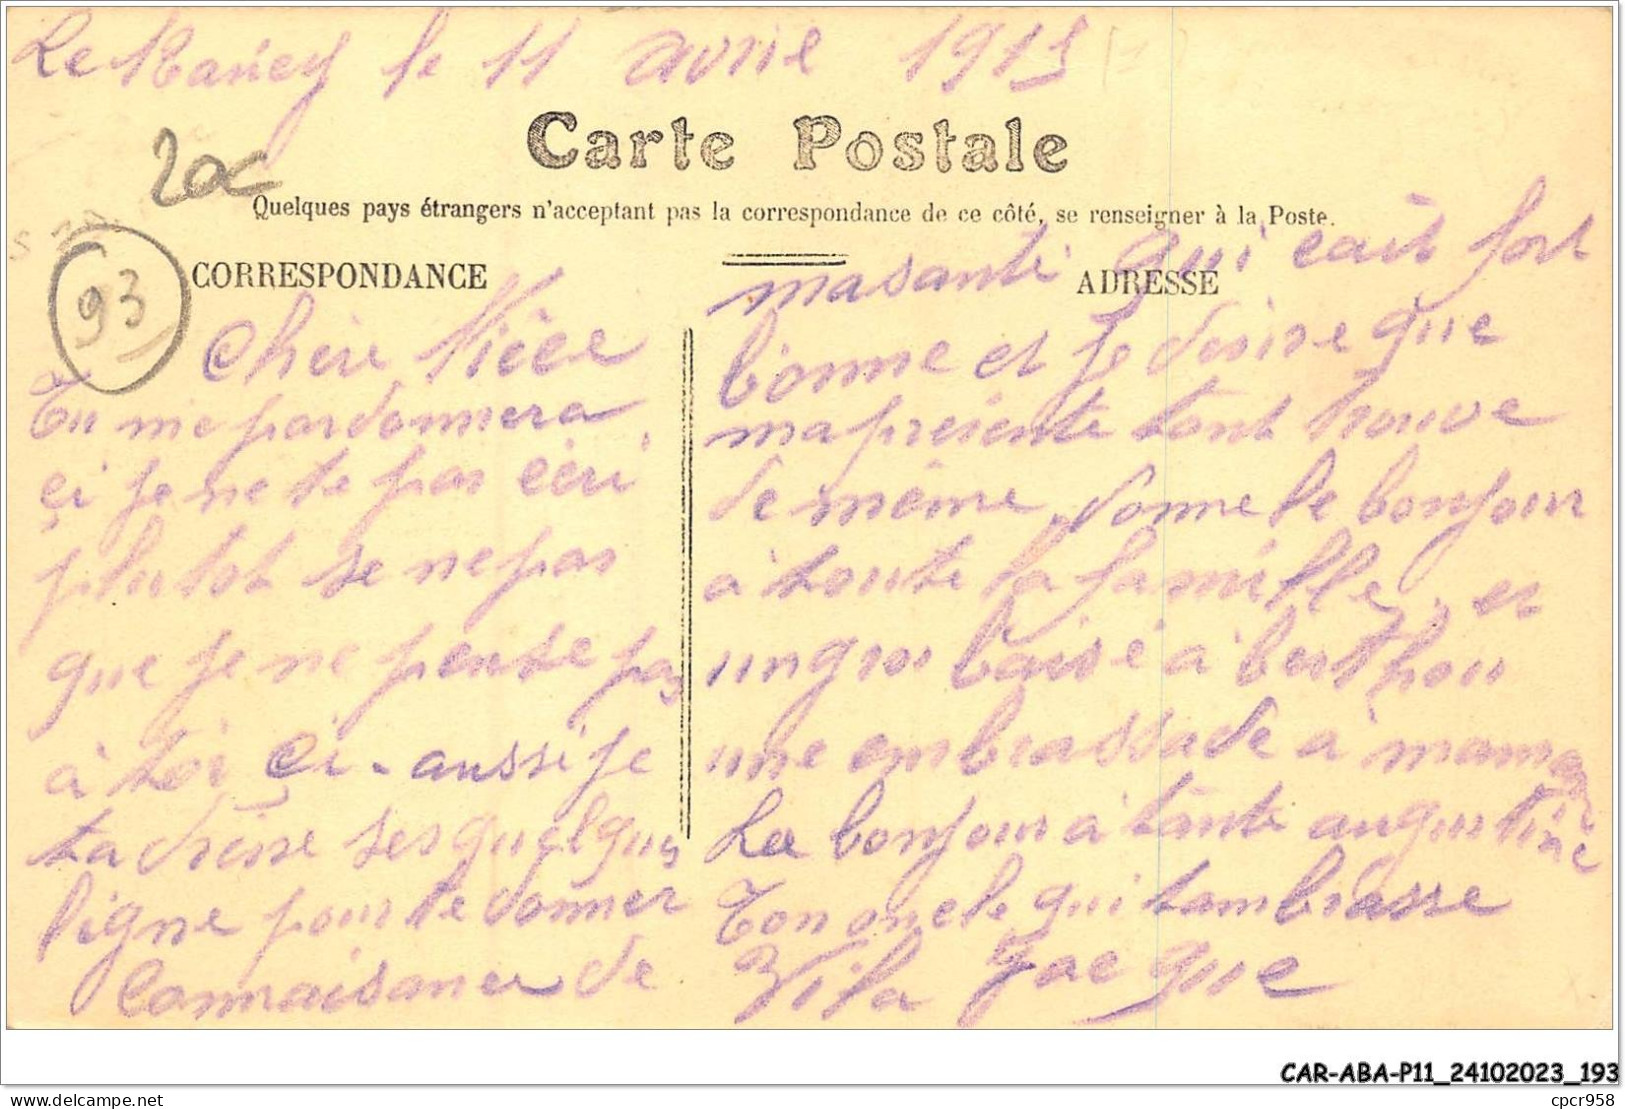 Le Rancy le 11 avril 1915
20c
Carte Postale
Quelques pays étrangers n'acceptant pas la correspondance de ce côté, se renseigner à la Poste.
93
CORRESPONDANCE
ADRESSE
Chère Nièce
Tu me pardonnera
çi je ne te pas écri
plutot se ne pas
que je ne pense pas
à toi çi-aussi je
ta drèsse ses quelques
ligne pour te donner
Connaisance de
masanté qui cait fort
bonne et je désire que
maprésente tant trouve
de même, donne le bonjour
à toute la famille, et
un gros baisé à berthou
une embrassade à maman
Le bonjour à tante augustine
Ton oncle qui tambrasse
Vila Jacque
CAR-ABA-P11_24102023_193
cpcr958